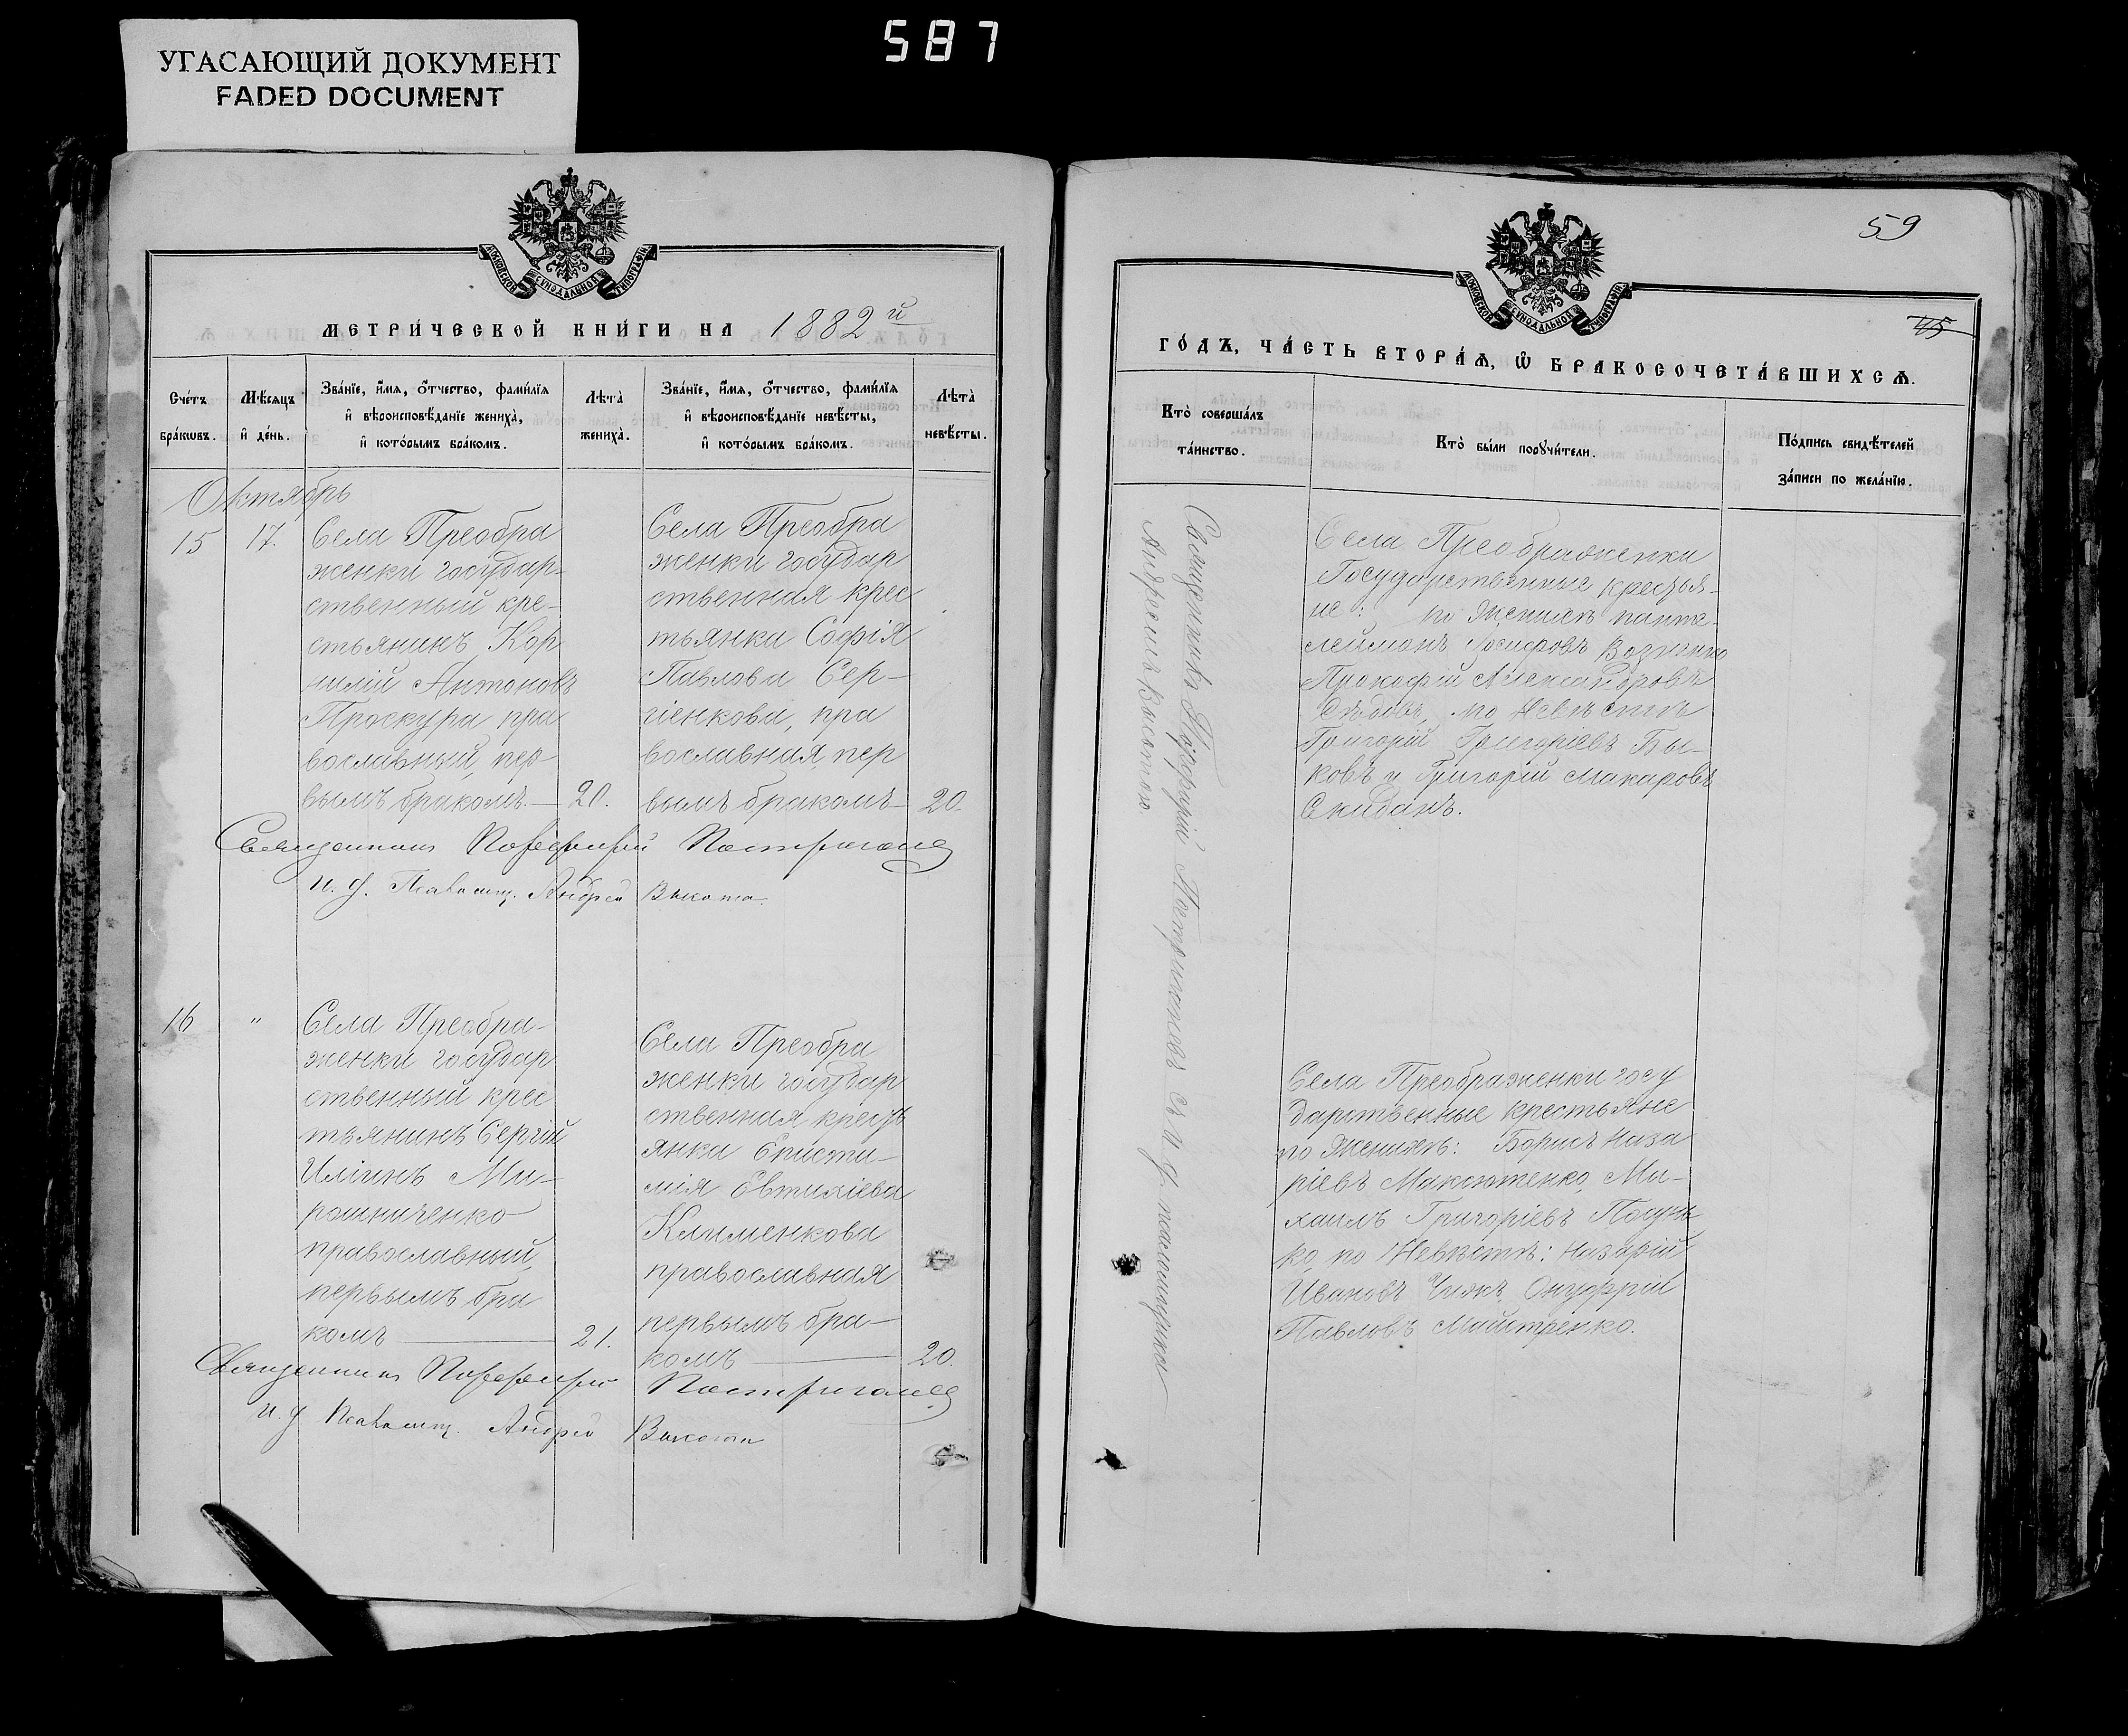 587
УГАСАЮЩИЙ ДОКУМЕНТ
FADED DOCUMENT
МОСКОВСКОЙ СѴНОДАЛЬНОЙ ТИПОГРАФІИ
МЕТРИ́ЧЕСКОЙ КНИ́ГИ НА 1882й
Сче́тъ бра́кѡвъ.
Мѣ́сяцъ и҆ де́нь.
Зва́нїе, и҆́мя, ѻ҆́тчество, фами́лїя
и҆ вѣроисповѣ́данїе жениха̀,
и҆ кото́рымъ бра́комъ.
Лѣ́та̀ жениха̀.
Зва́нїе, и҆́мя, ѻ҆́тчество, фами́лїя
и҆ вѣроисповѣ́данїе невѣ́сты,
и҆ кото́рымъ бра́комъ.
Лѣ́та̀ невѣ́сты.
Октябрь
15
17.
Села Преобра
женки государ-
ственный кре-
стьянинъ Кор
нилій Антоновъ
Проскура пра
вославный, пер-
вымъ бракомъ.—
20.
Села Преобра
женки государ
ственная крес
тьянка Софія
Павлова Сер-
гіенкова, пра
вославная, пер
вымъ бракомъ—
20.
Священникъ Порфирій
и. д. Псаломщ. Андрей Высота.
16
"
Села Преобра-
женки государ
ственный крес
тьянинъ Сергій
Иліинъ Ми-
рошниченко
православный,
первымъ бра
комъ —
21.
Села Преобра
женки государ
ственная кресть
янка Еписти-
мія Евтихіева
Клименкова
православная
первымъ бра-
комъ —
20.
Священникъ Порфирій
и. д. Псаломщ. Андрей Высота
59
45
МОСКОВСКОЙ СѴНОДАЛЬНОЙ ТИПОГРАФІИ
ГО́ДЪ, ЧА́СТЬ ВТОРА́Ѧ, Ѡ҆ БРАКОСОЧЕТА́ВШИХСѦ.
Кто̀ соверша́лъ
та́инство.
Кто̀ бы́ли порꙋчи́тели.
По́дпись свидѣ́телей
за́писи по жела́нїю.
Священникъ Порфирій и. д. псаломщика
Андреемъ Высотою.
Села Преображенки
Государственные крестья-
не: по Женихѣ панте-
леймонъ Іосифовъ
Прокофій Александровъ
Сѣдовъ, по Невѣстѣ
Григорій Григоріевъ Бы-
ковъ и Григорій Макаровъ
Скиданъ.
Села Преображенки госу
дарственные крестьяне
по Женихѣ: Борисъ Наза
ріевъ Максютенко, Ми-
хаилъ Григоріевъ
ко, по Невѣстѣ: Назарій
Ивановъ Чижъ, Онуфрій
Павловъ Майтренко.